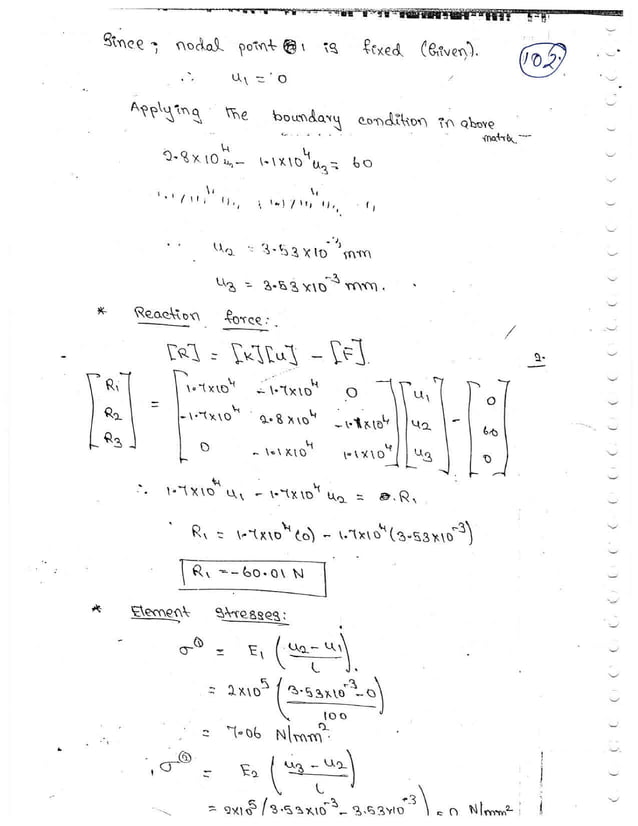 Since; nodal point 1 is fixed (Given).
102.
∴ u₁ = 0
Applying the boundary condition in above
matrix –
2.8×10⁴u₂ – 1.1×10⁴u₃ = 60
∴ u₂ = 3.53×10⁻³ mm
u₃ = 3.53×10⁻³ mm.
* Reaction force:.
[R] = [K][U] – [F].
2.
[R₁ R₂ R₃] = [1.7×10⁴ –1.7×10⁴ 0
–1.7×10⁴ 2.8×10⁴ –1.1×10⁴
0 –1.1×10⁴ 1.1×10⁴] [u₁ u₂ u₃] – [0 60 0]
∴ 1.7×10⁴ u₁ – 1.7×10⁴ u₂ = R₁
R₁ = 1.7×10⁴(0) – 1.7×10⁴(3.53×10⁻³)
R₁ = –60.01 N
* Element Stresses:
σ① = E₁ ((u₂ – u₁)/L).
= 2×10⁵ ((3.53×10⁻³ – 0)/100)
= 7.06 N/mm².
σ② = E₂ ((u₃ – u₂)/L)
= 2×10⁵ (3.53×10⁻³ – 3.53×10⁻³) = 0 N/mm²